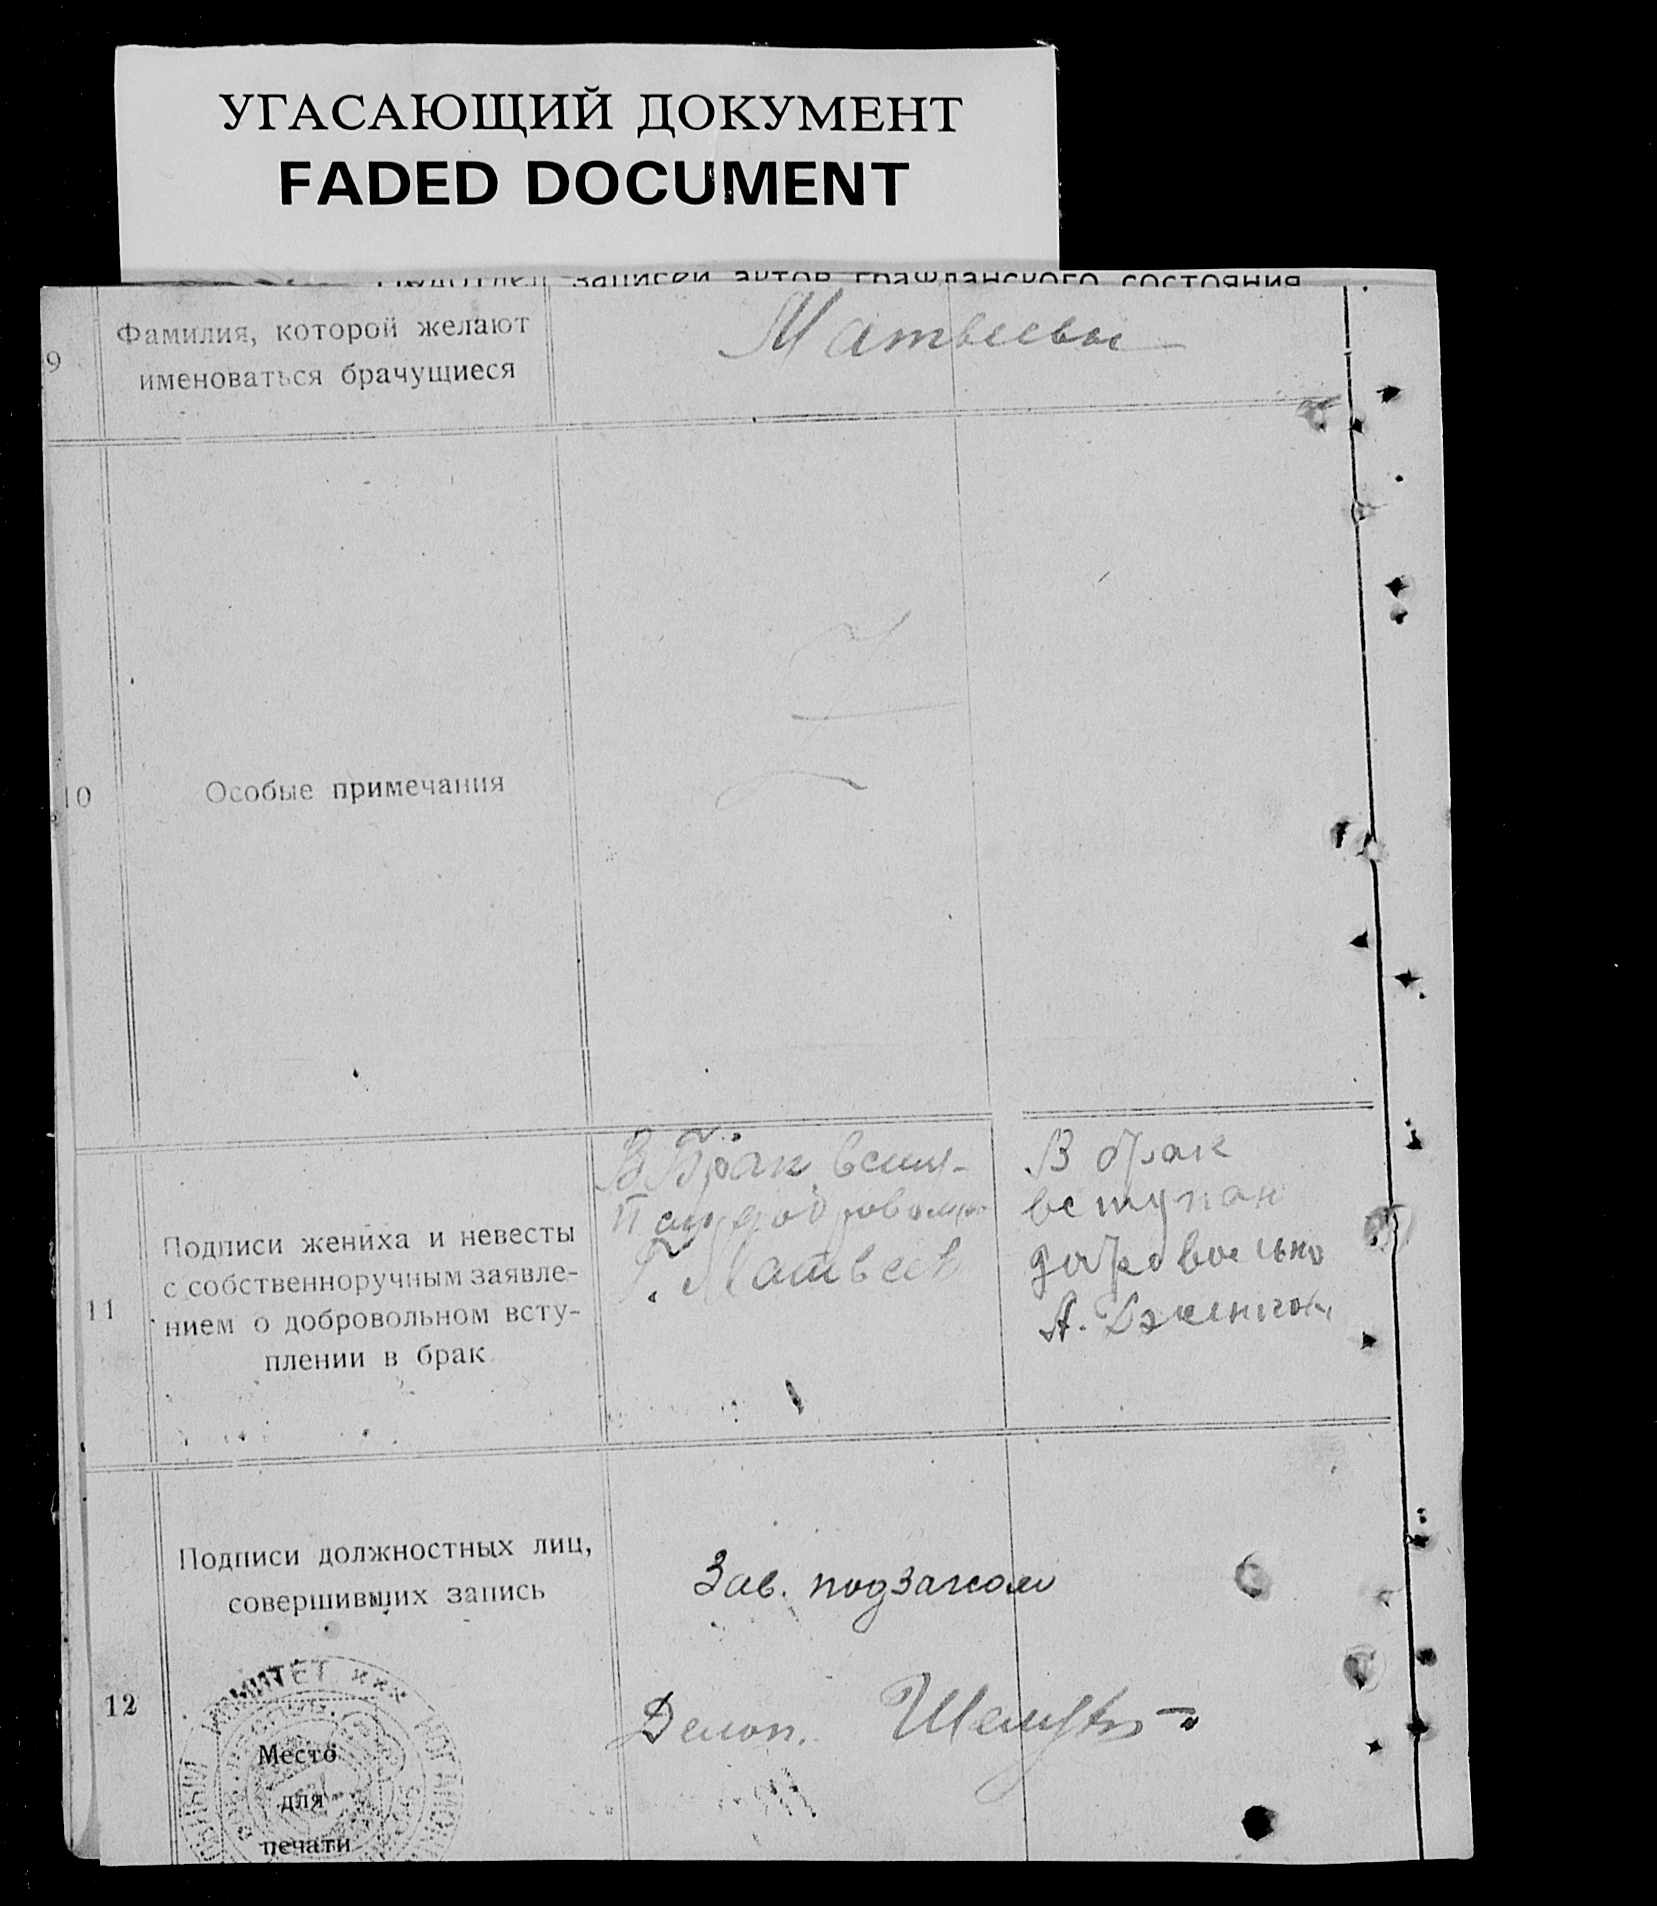 УГАСАЮЩИЙ ДОКУМЕНТ
FADED DOCUMENT
записей актов гражданского состояния
9
Фамилия, которой желают
именоваться брачущиеся
Матвеевы
10
Особые примечания
11
Подписи жениха и невесты
с собственноручным заявле-
нием о добровольном всту-
плении в брак
В Брак всту-
Г. Матвеев
В брак
вступаю
А.
12
Подписи должностных лиц,
совершивших запись
Зав. подзагсом
Делоп.
КОМИТЕТ ***
Место
для
печати